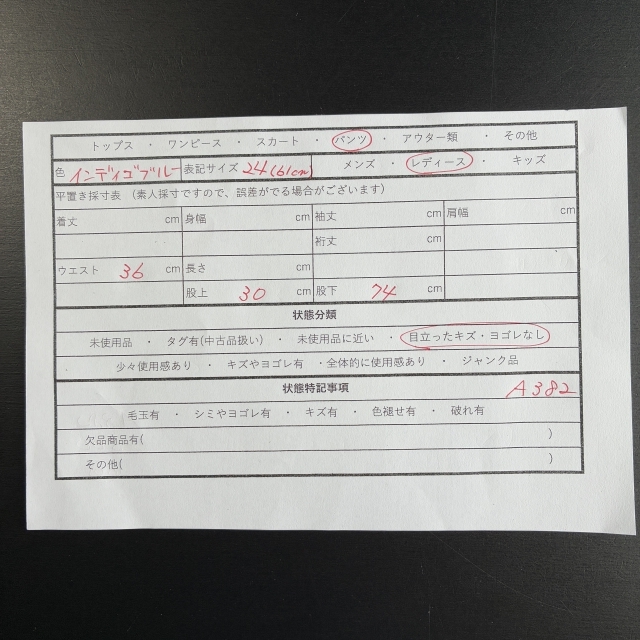 トップス ・ ワンピース ・ スカート ・ パンツ ・ アウター類 ・ その他
色 インディゴブルー 表記サイズ 24(61cm) メンズ ・ レディース ・ キッズ
平置き採寸表 (素人採寸ですので、誤差がでる場合がございます)
着丈 cm 身幅 cm 袖丈 cm 肩幅 cm
裄丈 cm
ウエスト 36 cm 長さ cm
股上 30 cm 股下 74 cm
状態分類
未使用品 ・ タグ有(中古品扱い) ・ 未使用品に近い ・ 目立ったキズ・ヨゴレなし
少々使用感あり ・ キズやヨゴレ有 ・全体的に使用感あり ・ ジャンク品
状態特記事項 A382
毛玉有 ・ シミやヨゴレ有 ・ キズ有 ・ 色褪せ有 ・ 破れ有
欠品商品有( )
その他( )